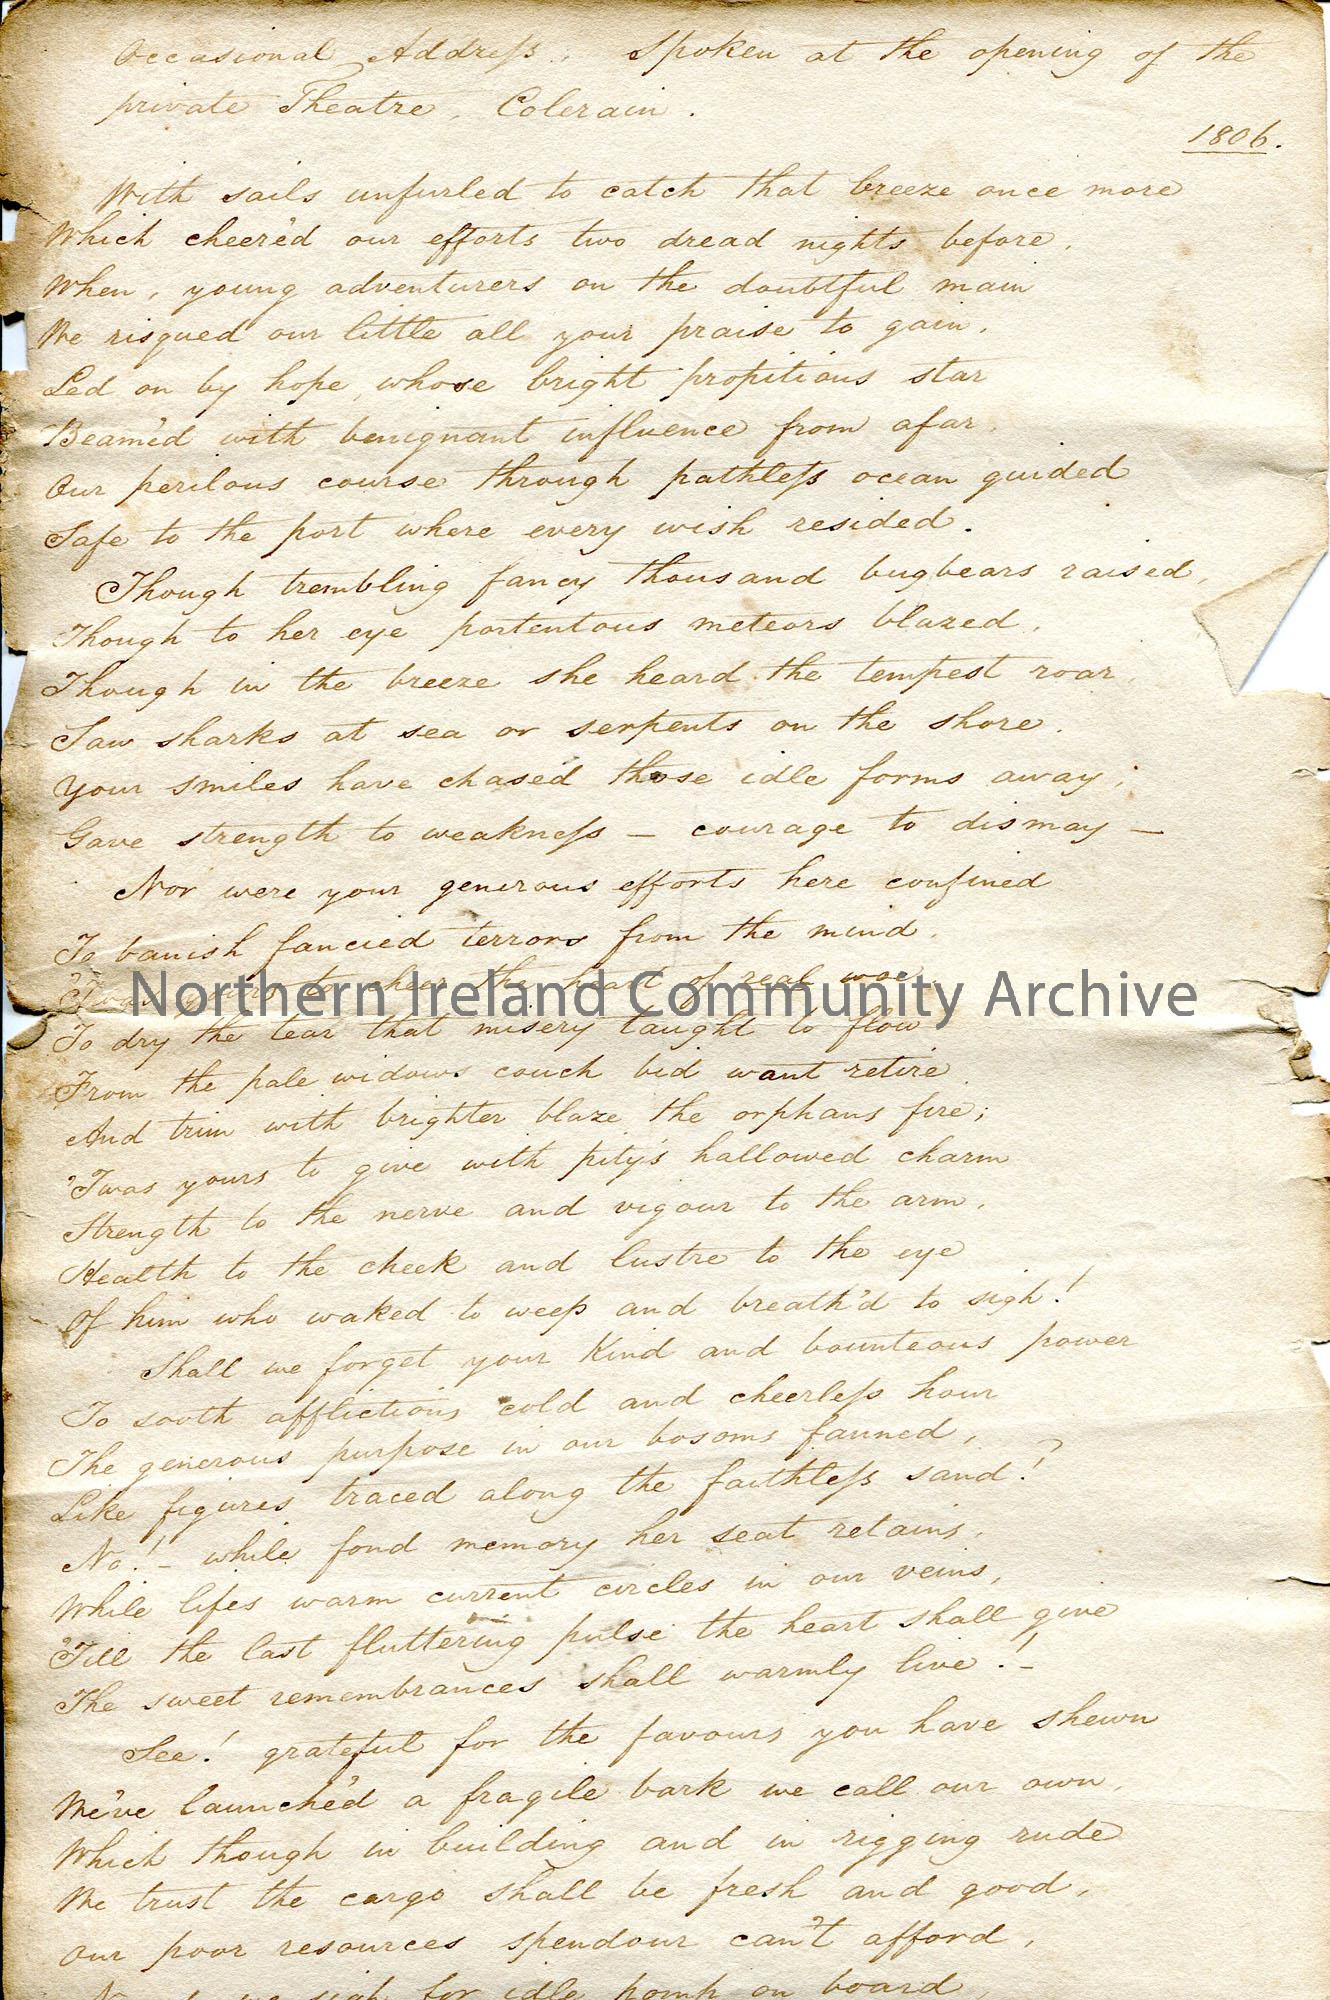 Occasional Addreſs, Spoken at the opening of the
private Theatre, Colerain.
1806.
With sails unfurled to catch that breeze once more
Which cheer'd our efforts two dread nights before,
When, young adventurers on the doubtful main
We risqued our little all your praise to gain,
Led on by hope, whose bright propitious star
Beam'd with benignant influence from afar,
Our perilous course through pathleſs ocean guided
Safe to the port where every wish resided.
Though trembling fancy thousand bugbears raised,
Though to her eye portentous meteors blazed,
Though in the breeze she heard the tempest roar,
Saw sharks at sea or serpents on the shore,
Your smiles have chased those idle forms away;
Gave strength to weakneſs – courage to dismay –
Nor were your generous efforts here confined
To banish fancied terrors from the mind,
'Twas yours to cheer the heart of real woe,
Northern Ireland Community Archive
To dry the tear that misery taught to flow
From the pale widows couch bid want retire
And trim with brighter blaze the orphans fire;
'Twas yours to give with pity's hallowed charm
Strength to the nerve and vigour to the arm,
Health to the cheek and lustre to the eye
Of him who waked to weep and breath'd to sigh!
Shall we forget your kind and bounteous power
To sooth afflictions cold and cheerleſs hour
The generous purpose in our bosoms fanned,
Like figures traced along the faithleſs sand!?
No! – while fond memory her seat retains,
While lifes warm current circles in our veins,
'Till the last fluttering pulse the heart shall give
The sweet remembrances shall warmly live! –
See! grateful for the favours you have shewn
We've launched a fragile bark we call our own,
Which though in building and in rigging rude
We trust the cargo shall be fresh and good,
Our poor resources spendour can't afford,
we sigh for idle pomp on board,